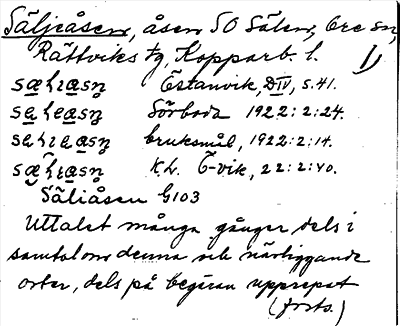 Säljeåsen, åsen SO Sälen, Ore sn,
Rättviks tg, Kopparb. l.
Östanvik, DIV, s. 41.
Sörboda 1922: 2: 24.
bruksmål, 1922: 2: 14.
Kh. Ö-vik, 22: 2: 40.
Säliåsen G103
Uttalet många gånger, dels i
samtal om denna och närliggande
orter, dels på begäran upprepat
(forts.)